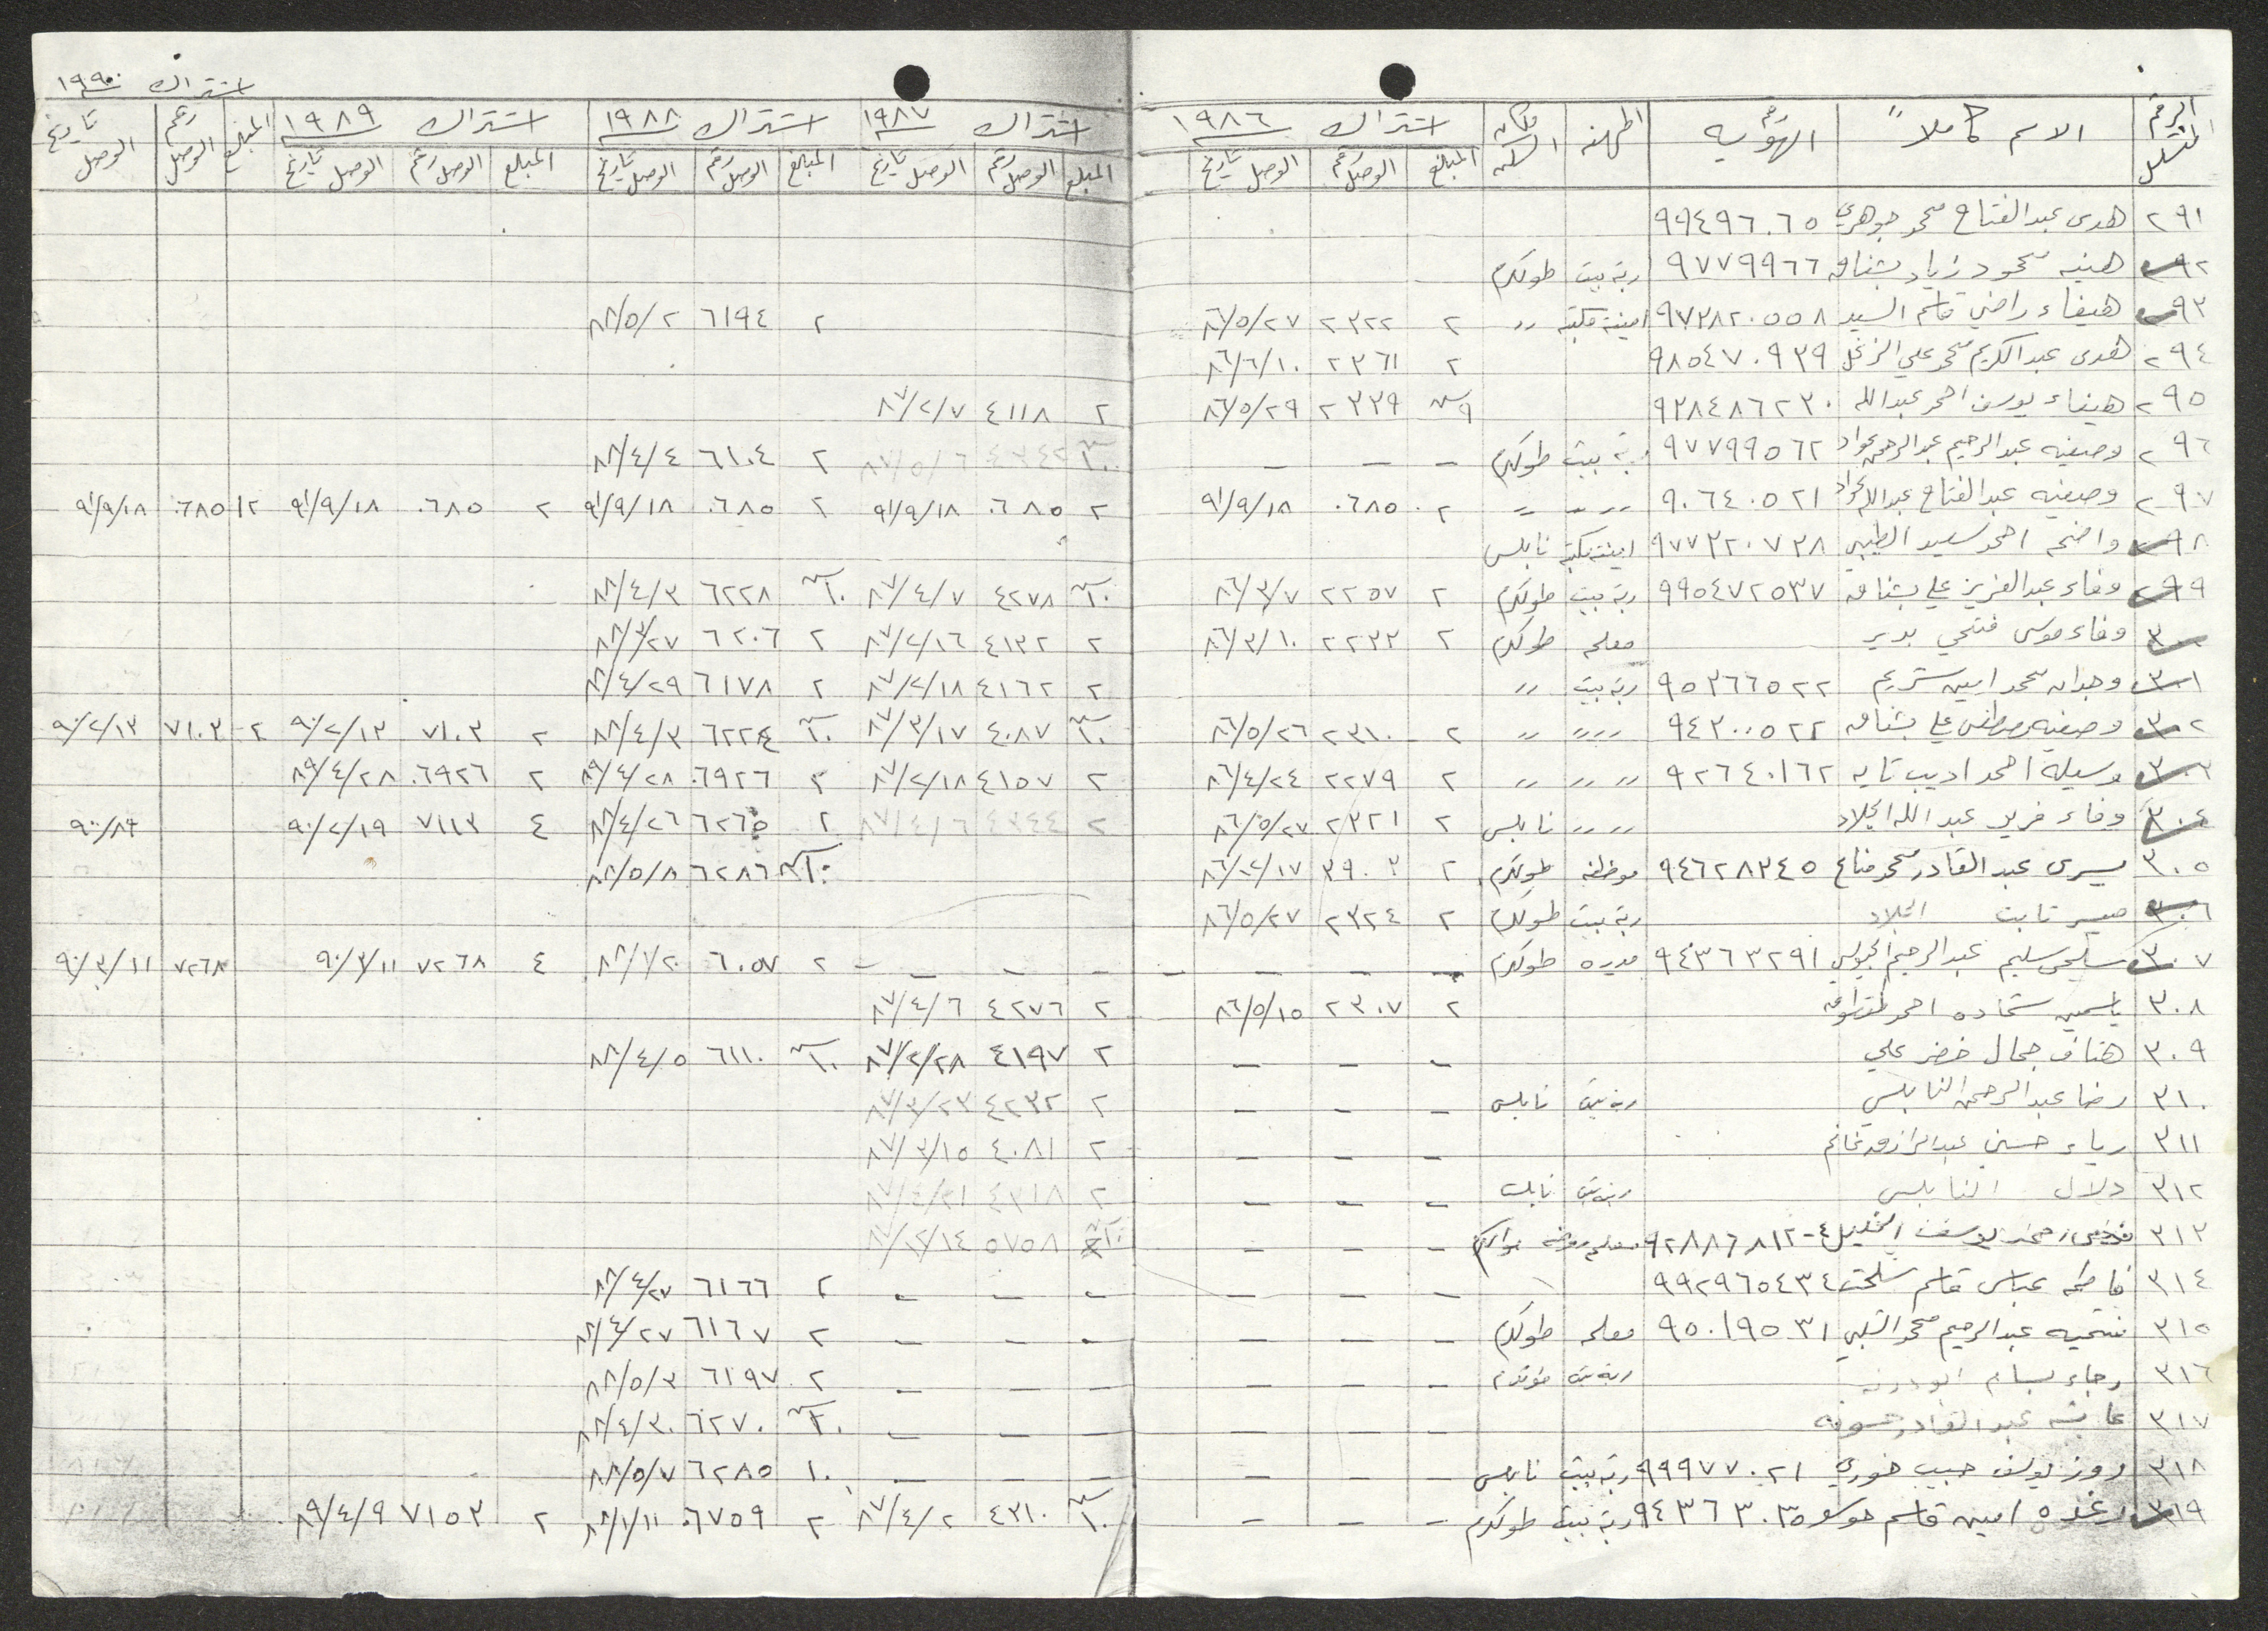 اشتراك ١٩٩٠
الرقم المتسلسل الاسم كاملاً رقم الهوية المهنة مكان السكن اشتراك ١٩٨٦ اشتراك ١٩٨٧ اشتراك ١٩٨٨ اشتراك ١٩٨٩ المبلغ رقم الوصل تاريخ الوصل
المبلغ رقم الوصل تاريخ الوصل المبلغ رقم الوصل تاريخ الوصل المبلغ رقم الوصل تاريخ الوصل المبلغ رقم الوصل تاريخ الوصل
٢٩١ هدى عبد الفتاح محمد جوهري ٩٩٤٩٦٠٦٥
٢٩٢ هنيه محمود زياد بشناق ٩٧٧٩٩٦٦ ربة بيت طولكرم
٢٩٣ هيفاء راضي قاسم السيد ٩٧٣٨٢٠٥٥٨ امينة مكتبة ,, ٢ ٢٣٢٢ ٨٦/٥/٢٧ ٢ ٦١٩٤ ٨٨/٥/٢
٢٩٤ هدى عبد الكريم محمد علي الزغل ٩٨٥٤٧٠٩٣٩ ٢ ٢٣٦١ ٨٦/٦/١٠
٢٩٥ هيفاء يوسف احمد عبدالله ٩٣٨٤٨٦٢٣٠ ٢٣٣٩ ٨٦/٥/٢٩ ٢ ٤١١٨ ٨٧/٢/٧
٢٩٦ وصفيه عبد الرحيم عبد الرحمن عواد ٩٧٧٩٩٥٦٢ ربة بيت طولكرم - - - ٤٣٤٢ ٨٧/٥/٦ ٢ ٦١٠٤ ٨٨/٤/٤
٢٩٧ وصفيه عبد الفتاح عبدالله عواد ٩٠٦٤٠٥٢١ ,, ,, ,, ٢ ٠٦٨٥ ٩١/٩/١٨ ٢ ٠٦٨٥ ٩١/٩/١٨ ٢ ٠٦٨٥ ٩١/٩/١٨ ٢ ٠٦٨٥ ٩١/٩/١٨ ٢ ٠٦٨٥ ٩١/٩/١٨
٢٩٨ واضحه احمد سعيد الطيبي ٩٧٧٣٢٠٧٣٨ امينة مكتبة نابلس
٢٩٩ وفاء عبد العزيز علي بشناق ٩٩٥٤٧٢٥٣٧ ربة بيت طولكرم ٢ ٢٢٥٧ ٨٦/٣/٧ ٤٢٧٨ ٨٧/٤/٧ ٦٢٢٨ ٨٨/٤/٣
٣٠٠ وفاء موسى فتحي بدير معلمه طولكرم ٢ ٢٢٣٣ ٨٦/٣/١٠ ٢ ٤١٣٢ ٨٧/٢/١٦ ٢ ٦٢٠٦ ٨٨/٣/٢٧
٣٠١ وجدان محمد امين شريم ٩٥٣٦٦٥٢٢ ربة بيت ,, ٢ ٤١٦٢ ٨٧/٢/١٨ ٢ ٦١٧٨ ٨٨/٤/٢٩
٣٠٢ وصفيه مصطفى علي بشناق ٩٤٣٠٠٥٢٢ ,, ,, ,, ٢ ٢٣١٠ ٨٦/٥/٢٦ ٤٠٨٧ ٨٧/٣/١٧ ٦٢٢٤ ٨٨/٤/٣ ٢ ٧١٠٣ ٩٠/٢/١٣ ٢ ٧١٠٣ ٩٠/٢/١٣
٣٠٣ وسيله احمد اديب تايه ٩٢٦٤٠١٦٢ ,, ,, ,, ٢ ٢٢٧٩ ٨٦/٤/٢٤ ٢ ٤١٥٧ ٨٧/٢/١٨ ٣ ٠٦٩٢٦ ٨٩/٤/٢٨ ٢ ٠٦٩٢٦ ٨٩/٤/٢٨
٣٠٤ وفاء فريد عبدالله الجلاد ,, ,, نابلس ٢ ٢٣٢١ ٨٦/٥/٢٧ ٢ ٤٣٤٤ ٨٧/٤/٦ ٢ ٦٢٦٥ ٨٨/٤/٢٦ ٤ ٧١١٣ ٩٠/٢/١٩
٣٠٥ يسرى عبد القادر محمد مناع ٩٤٦٢٨٣٤٥ موظفه طولكرم ٢ ٣٩٠٢ ٨٦/١٢/١٧ ٦٢٨٦ ٨٨/٥/٨
٣٠٦ ثابت الجلاد ربة بيت طولكرم ٢ ٢٣٢٤ ٨٦/٥/٢٧
٣٠٧ سلمى سليم عبد الرحيم الجيوسي ٩٤٣٦٣٢٩١ مديره طولكرم - - - - - - - ٢ ٦٠٥٧ ٨٨/١/٢٠ ٤ ٧٢٦٨ ٩٠/٣/١١ ٧٢٦٨ ٩٠/٣/١١
٣٠٨ ياسمين شحاده احمد ٢ ٢٣٠٧ ٨٦/٥/١٥ ٢ ٤٢٧٦ ٨٧/٤/٦
٣٠٩ هتاف جمال خضر علي - - - ٢ ٤١٩٧ ٨٧/٢/٢٨ ٦١١٠ ٨٨/٤/٥
٣١٠ رضا عبد الرحمن النابلسي ربة بيت نابلس - - - ٢ ٤٢٣٢ ٨٧/٣/٢٣
٣١١ رياء حسني عبد الرازق غانم - - - ٢ ٤٠٨١ ٨٧/٣/١٥
٣١٢ دلال النابلسي ربة بيت نابلس - - - ٢ ٤٣١٨ ٨٧/٤/٢١
٣١٣ محمد يوسف الخليل معلمة روضه - - - ٥٧٥٨ ٨٧/١٢/١٤
٣١٤ فاطمه عباس قاسم ٩٩٢٩٦٥٤٣٤ - - - - - - ٢ ٦١٦٦ ٨٨/٤/٢٧
٣١٥ فتحيه عبد الرحيم محمد الشلبي ٩٥٠١٩٥٣١ معلمه طولكرم - - - - - - ٢ ٦١٦٧ ٨٨/٤/٢٧
٣١٦ رجاء بسام ربة بيت طولكرم - - - - - - ٢ ٦١٩٧ ٨٨/٥/٣
٣١٧ عائشه عبد القادر - - - - - - ٦٢٧٠ ٨٨/٤/٣٠
٣١٨ روز يوسف حبيب خوري ٩٩٩٧٧٠٢١ ربة بيت نابلس - - - - - - ١٠ ٦٢٨٥ ٨٨/٥/٧
٣١٩ رغده امين قاسم ٩٤٣٦٣٠٣٥ ربة بيت طولكرم - - - ٤٣١٠ ٨٧/٤/٢ ٢ ٠٦٧٥٩ ٨٨/١/١١ ٢ ٧١٥٣ ٨٩/٤/٩